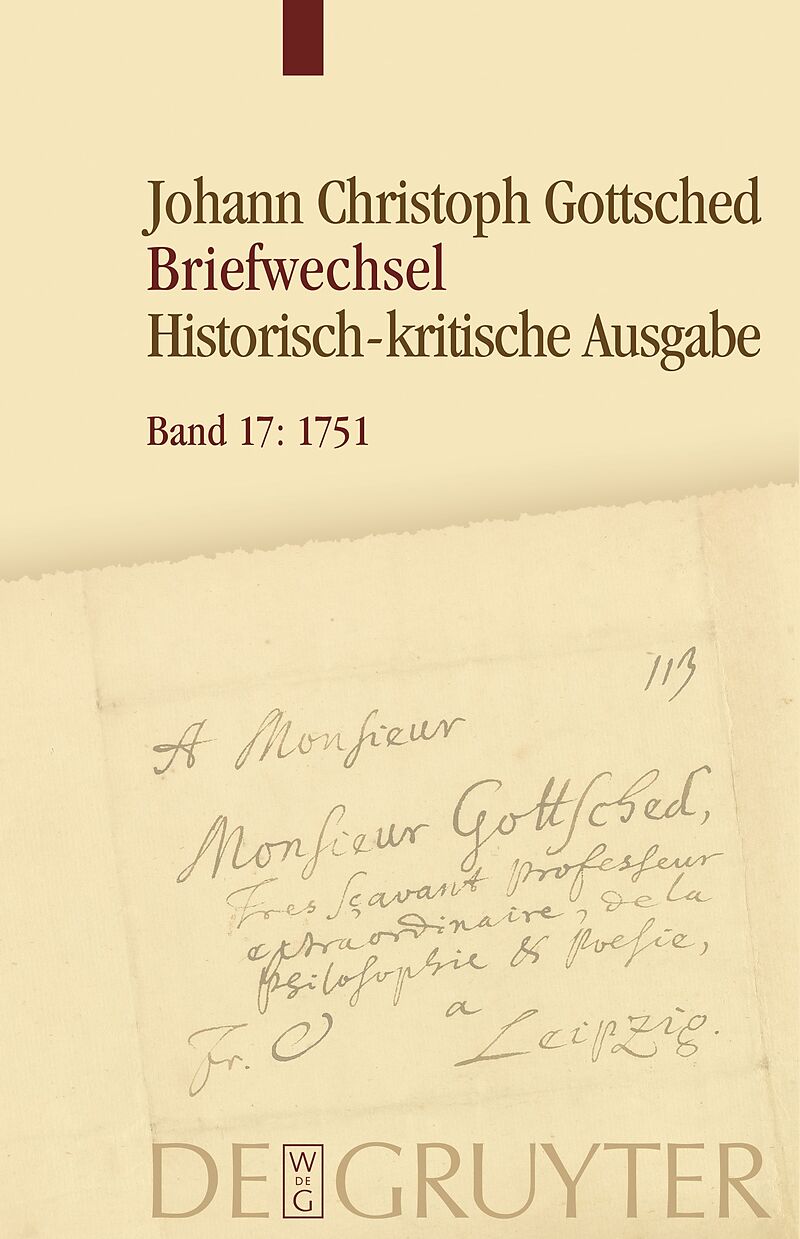 Johann Christoph Gottsched
Briefwechsel
Historisch-kritische Ausgabe
Band 17: 1751
113
A Monsieur
Monsieur Gottsched,
Tres sçavant professeur
extraordinaire, de la
philosophie & poesie,
a
Fr. Leipzig.
DE GRUYTER
W
DE
G